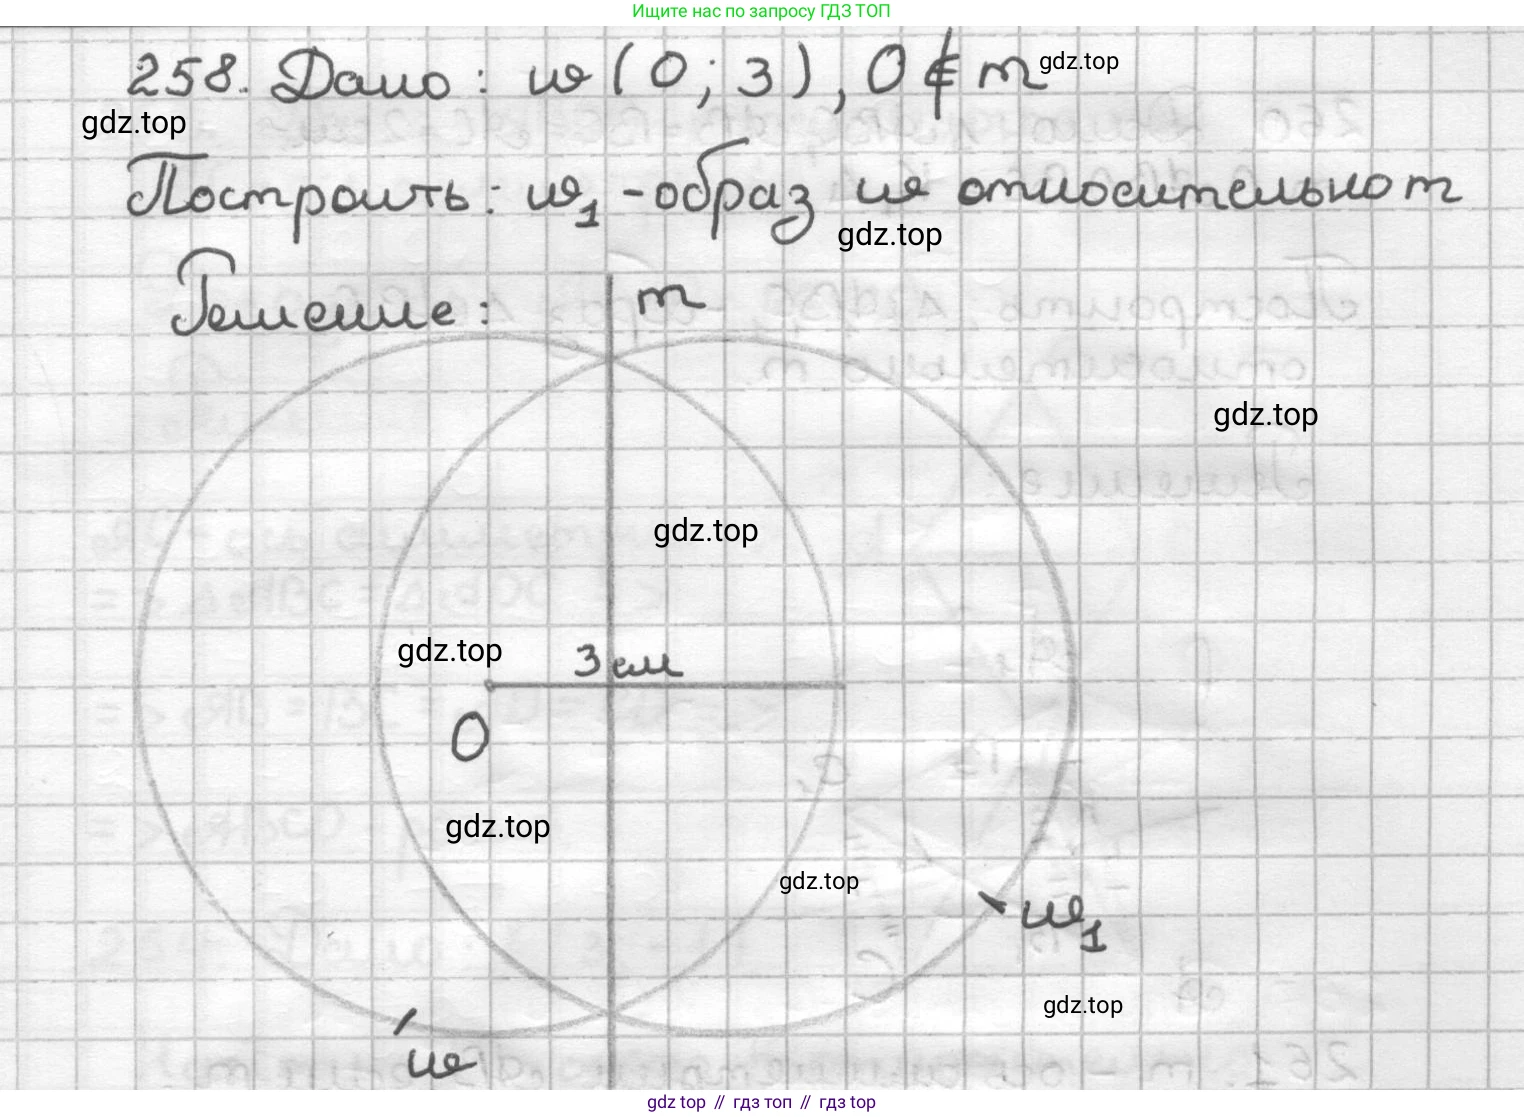 Ищите нас по запросу ГДЗ ТОП
258. Дано: ω(O; 3), O ∉ m
gdz.top
gdz.top
Построить: ω₁ - образ ω относительно m
gdz.top
Решение:
m
gdz.top
gdz.top
gdz.top
3 см
O
gdz.top
gdz.top
ω₁
gdz.top
ω
gdz top // гдз топ // гдз top